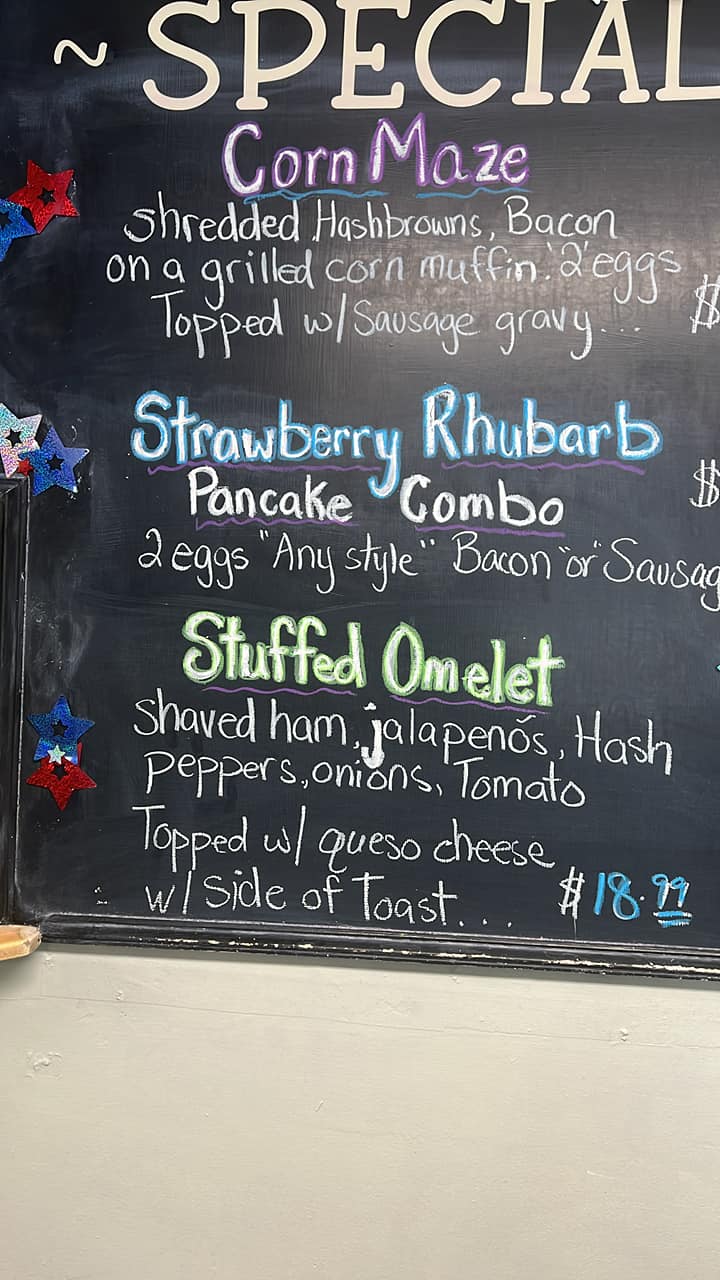 ~ SPECIAL
Corn Maze
shredded Hashbrowns, Bacon
on a grilled corn muffin. '2' eggs
Topped w/ Sausage gravy... $
Strawberry Rhubarb
Pancake Combo $
2 eggs "Any style" Bacon "or" Sausag
Stuffed Omelet
shaved ham, jalapenós, Hash
peppers, onions, Tomato
Topped w/ queso cheese
w/ side of Toast.... $18.99